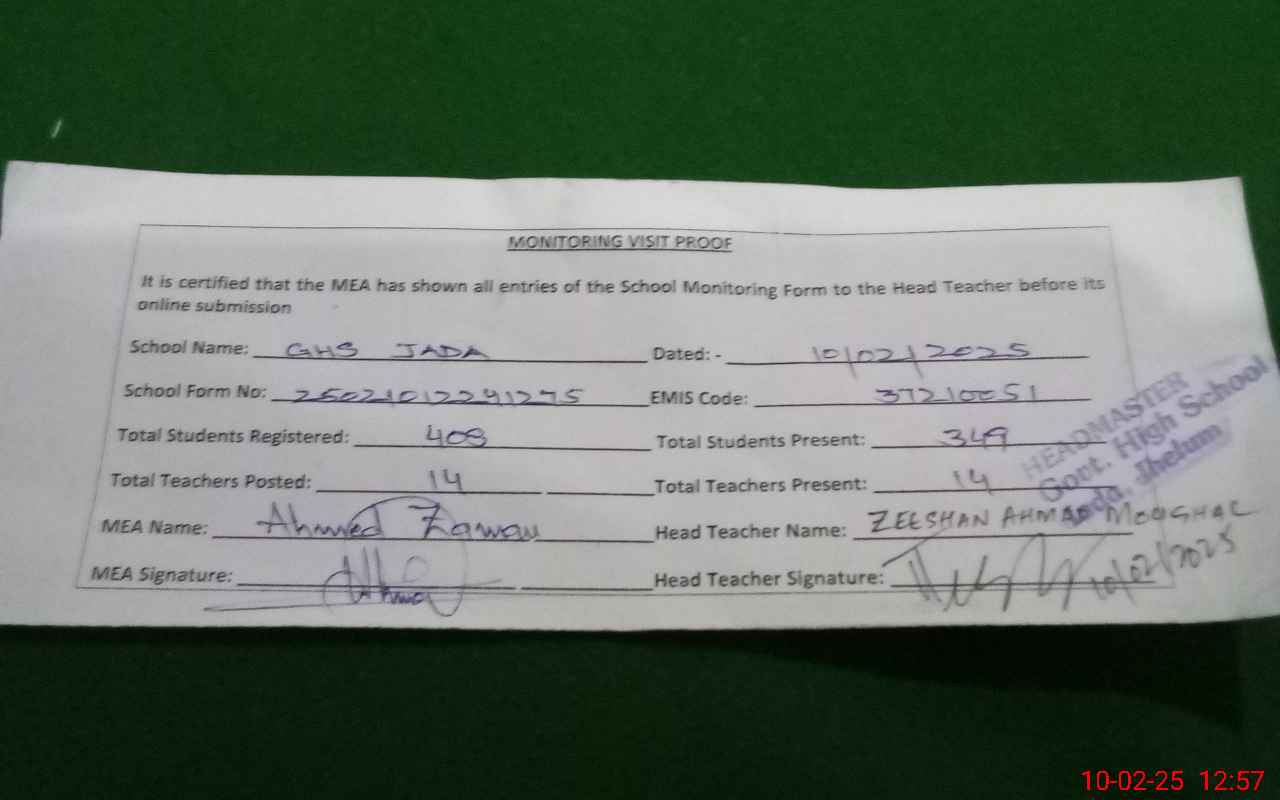 MONITORING VISIT PROOF
It is certified that the MEA has shown all entries of the School Monitoring Form to the Head Teacher before its
online submission
School Name: GHS JADA Dated: - 10/02/2025
School Form No: 25021012291275 EMIS Code: 37210051
Total Students Registered: 408 Total Students Present: 349
Total Teachers Posted: 14 Total Teachers Present: 14
MEA Name: Ahmed Head Teacher Name: ZEESHAN AHMAD
MEA Signature: Head Teacher Signature: 10/02/2025
HEADMASTER
Govt. High School
Jada, Jhelum
10-02-25 12:57